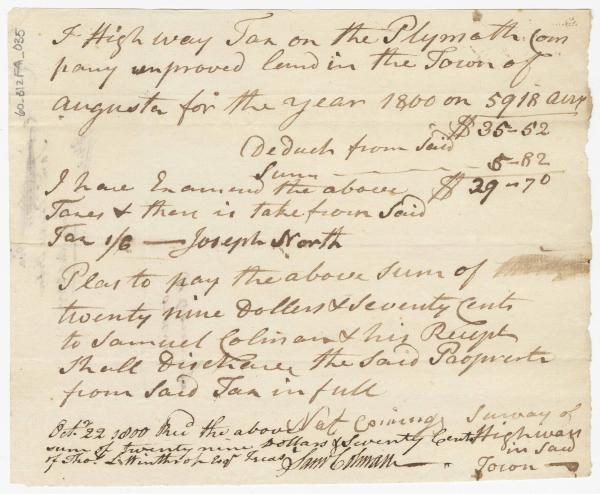 60-812FA_035
A High way Tax on the Plymoth Com
pany unproved land in the Town of
Augusta for the year 1800 on 5918 acrs
$ 35-52
Deduck from said
Sum 5-82
$ 29-70
I have Examend the above
Taxes & then is take from Said
Tax 1/6 — Joseph North
Plas to pay the above Sum of
twenty nine Dollars & Seventy Cents
to Samuel Colman & his Recept
Shall Discharge the Said Propverte
from Said Tax in full
Nat Coining Survay of
Highways
in Said
Town
Oct.r 22 1800 Rec'd the above
sum of twenty nine Dollars & Seventy Cents
of Thos L Winthrop Esqr Treasr Saml Colman